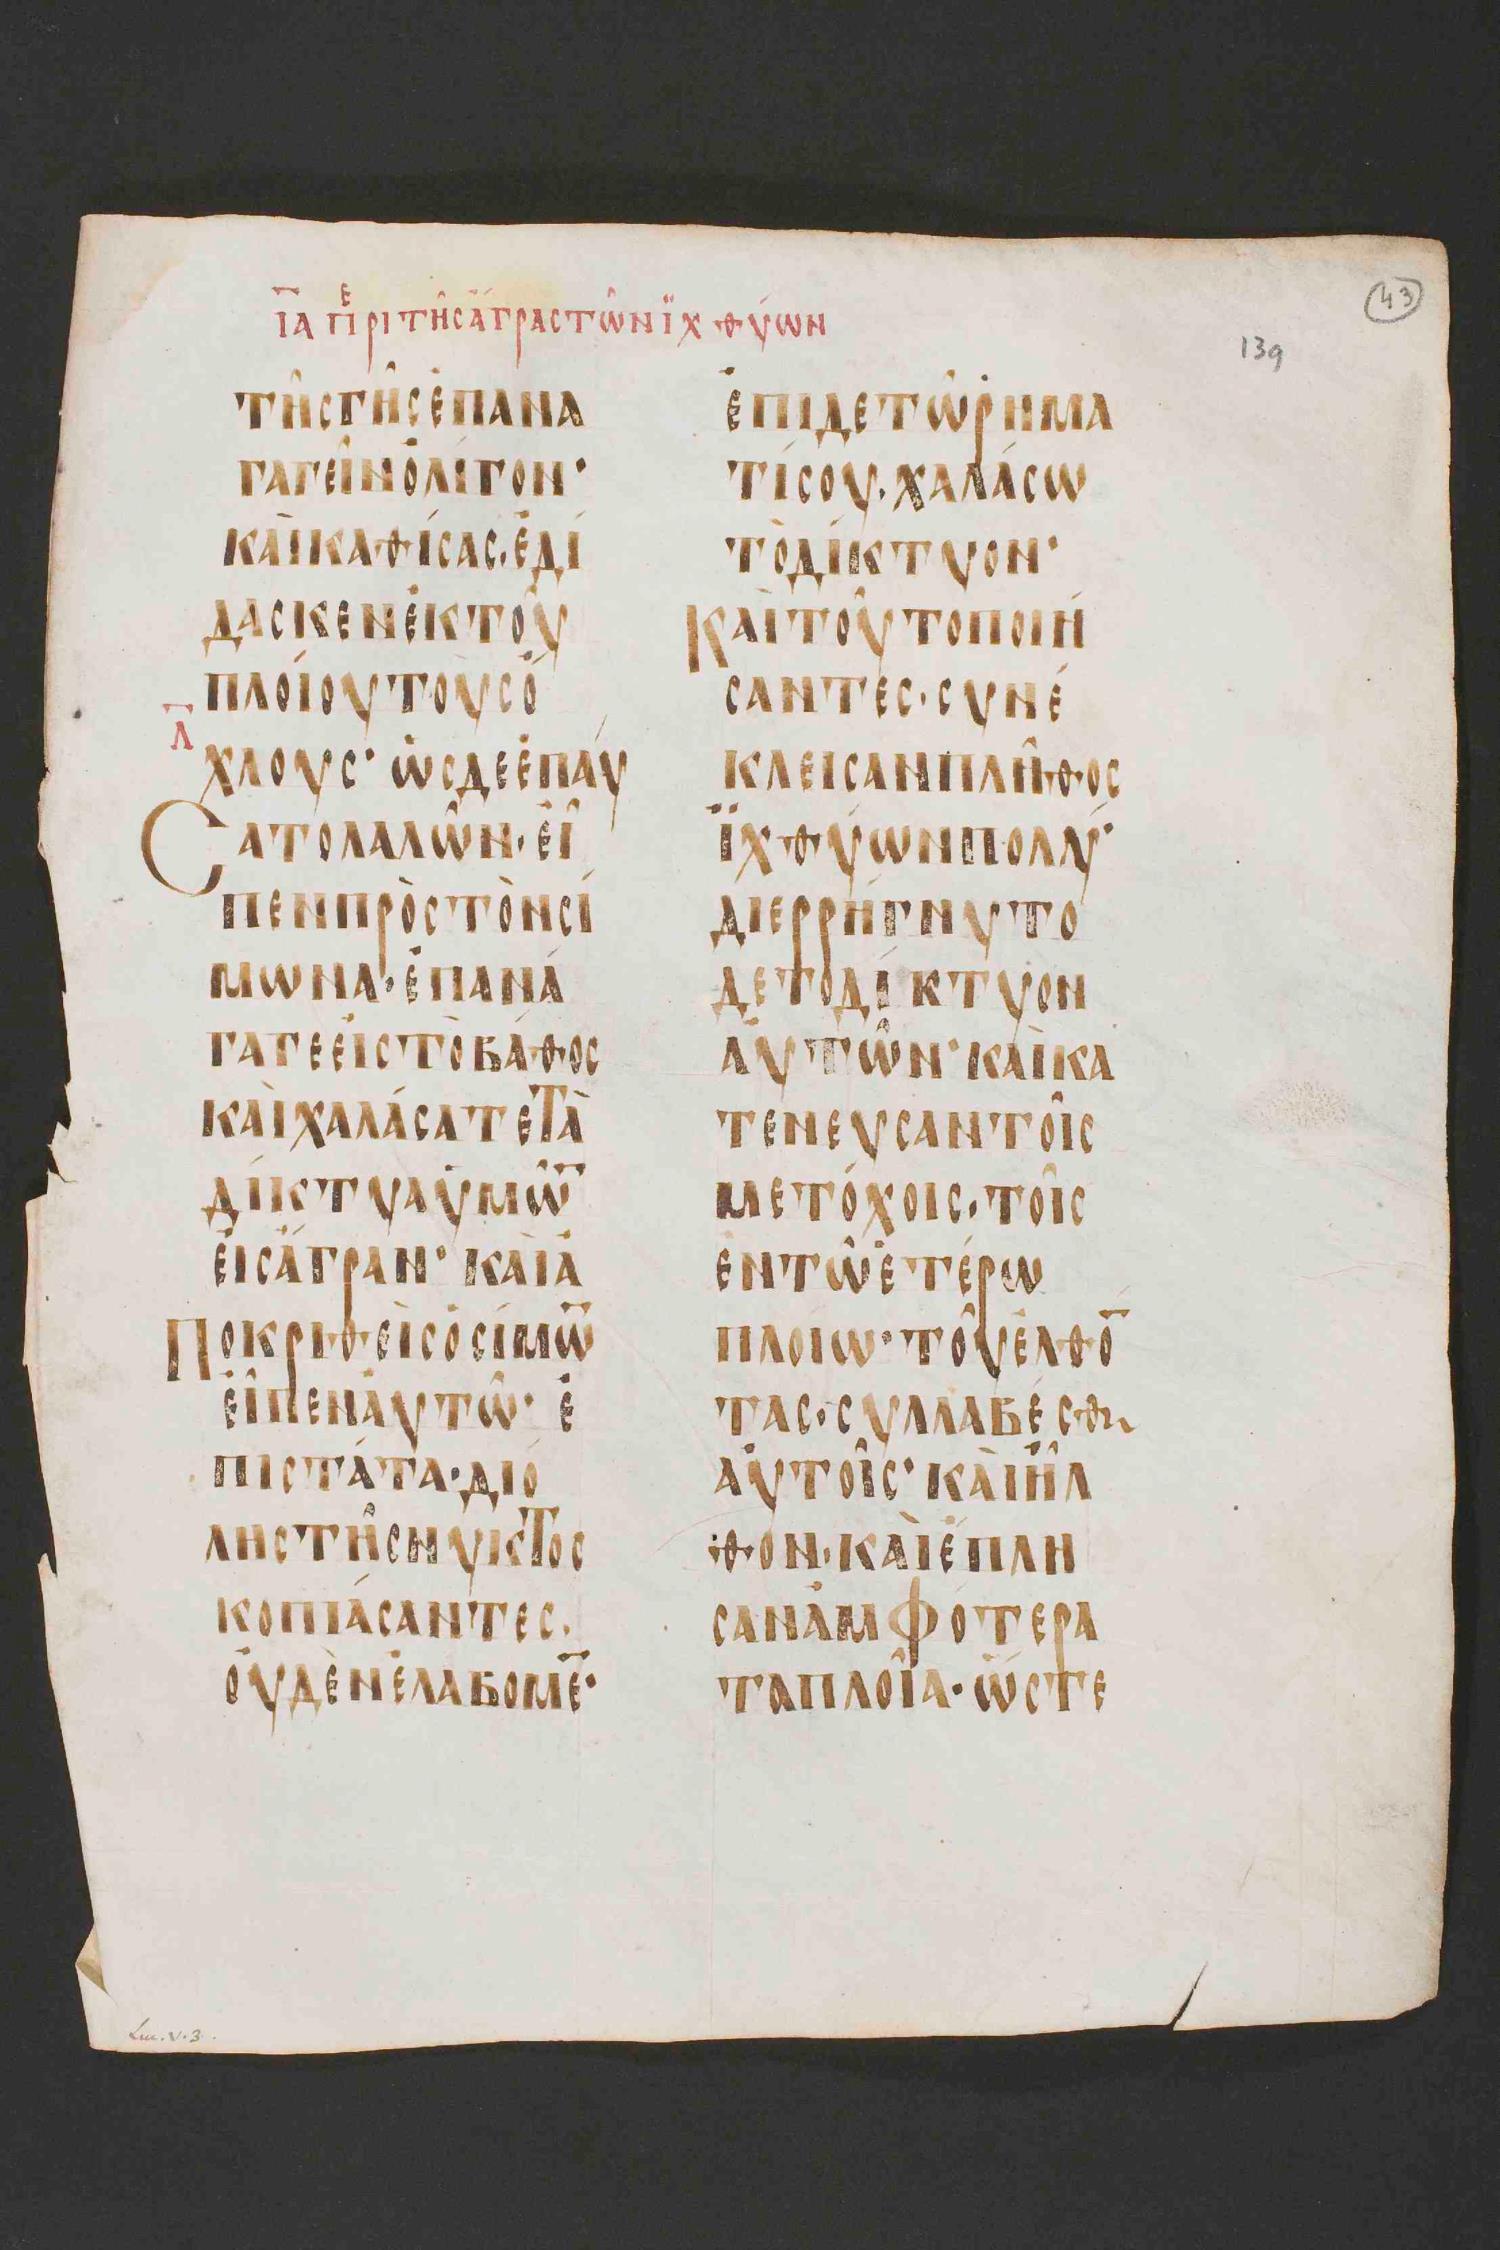 43
139
ΙΑ ΠΕΡΙ ΤΗ͂Σ ἌΓΡΑΣ ΤΩ͂Ν ἸΧΘΎΩΝ
ΤΗ͂ϹΓΗ͂ϹἘΠΑΝΑ
ΓΑΓΕΙ͂ΝὈΛΊΓΟΝ·
ΚΑῚΚΑΘΊϹΑϹ·ἘΔΊ
ΔΑϹΚΕΝἘΚΤΟΥ͂
ΠΛΟΊΟΥΤΟῪϹὌ
Λ
ΧΛΟΥϹ· ὩϹΔΕἘΠΑΎ
ϹΑΤΟΛΑΛΩ͂Ν·ΕἾ
ΠΕΝΠΡῸϹΤῸΝϹΊ
ΜΩΝΑ·ἘΠΑΝΆ
ΓΑΓΕΕἸϹΤῸΒΆΘΟϹ
ΚΑῚΧΑΛΆϹΑΤΕΤᾺ
ΔΊΚΤΥΑὙΜΩ͂̅
ΕἸϹἌΓΡΑΝ· ΚΑῚἈ
ΠΟΚΡΙΘΕῚϹὉϹΊΜΩ̅
ΕἾΠΕΝΑὐΤΩ͂· Ἐ
ΠΙϹΤΆΤΑ·ΔΙΌ
ΛΗϹΤΗ͂ϹΝΥΚΤΟϹ
ΚΟΠΙΆϹΑΝΤΕϹ·
ΟὐΔῈΝἘΛΑΒΟΜΕ̅·
ἘΠΙΔΕΤΩ͂ΡΗΜΑ
ΤΊϹΟΥ·ΧΑΛΆϹΩ
ΤῸΔΊΚΤΥΟΝ·
ΚΑῚΤΟΥ͂ΤΟΠΟΙΉ
ϹΑΝΤΕϹ·ϹΥΝΈ
ΚΛΕΙϹΑΝΠΛΗ͂ΘΟϹ
ἸΧΘΎΩΝΠΟΛΎ·
ΔΙΕΡΡΉΓΝΥΤΟ
ΔΕΤΟΔΊΚΤΥΟΝ
ΑὐΤΩ͂Ν·ΚΑῚΚΑ
ΤΕΝΕΥϹΑΝΤΟΙ͂Ϲ
ΜΕΤΌΧΟΙϹ·ΤΟΙ͂Ϲ
ἘΝΤΩ͂ἙΤΈΡΩ
ΠΛΟΊΩ·ΤΟΥ͂ἘΛΘΌ̅
ΤΑϹ·ϹΥΛΛΑΒΈϹΘΑΙ
ΑὐΤΟΙ͂Ϲ·ΚΑῚἮΛ
ΘΟΝ·ΚΑῚἘΠΛΗ
ϹΑΝἈΜΦΌΤΕΡΑ
ΤΑΠΛΟΙ͂Α·ὭϹΤΕ
Luc. V. 3.